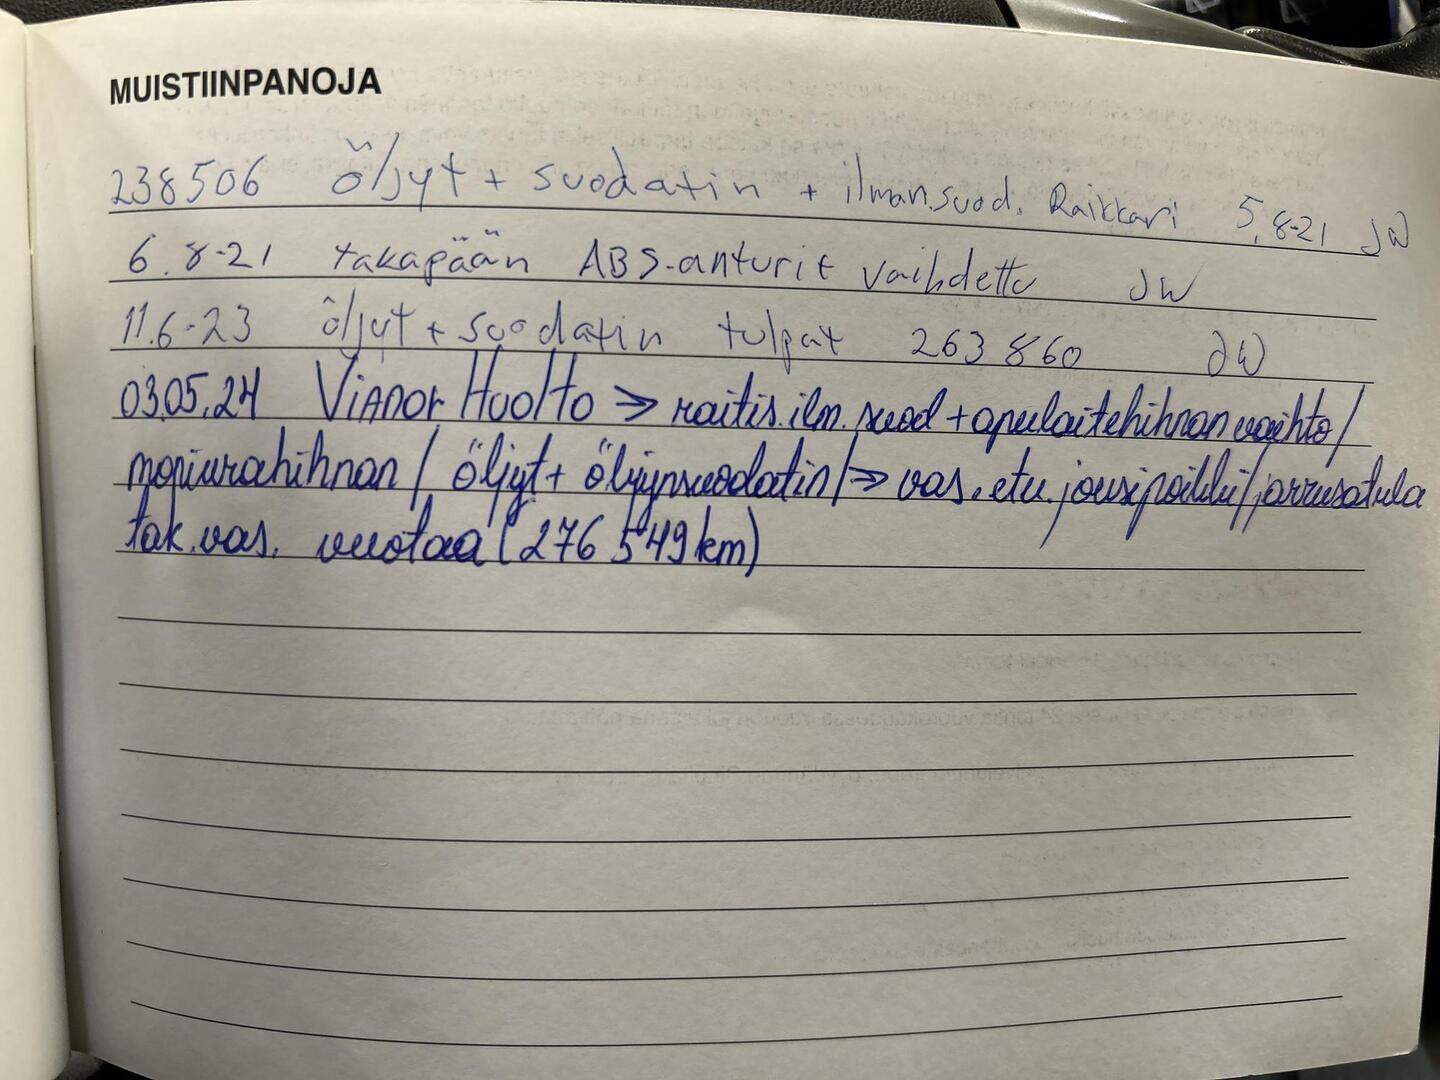 MUISTIINPANOJA
238506 Öljyt + suodatin + ilman.suod. Raikkari 5.8-21 JW
6.8-21 takapään ABS-anturit vaihdettu JW
11.6-23 öljyt + suodatin tulpat 263 860 JW
03.05.24 Vianor Huolto => raitis.ilm.suod + apulaitehihnan vaihto /
moniurahihnan / öljyt + öljynsuodatin / => vas.etu.jousi poikki / jarrusatula
tak.vas. vuotaa (276 549 km)